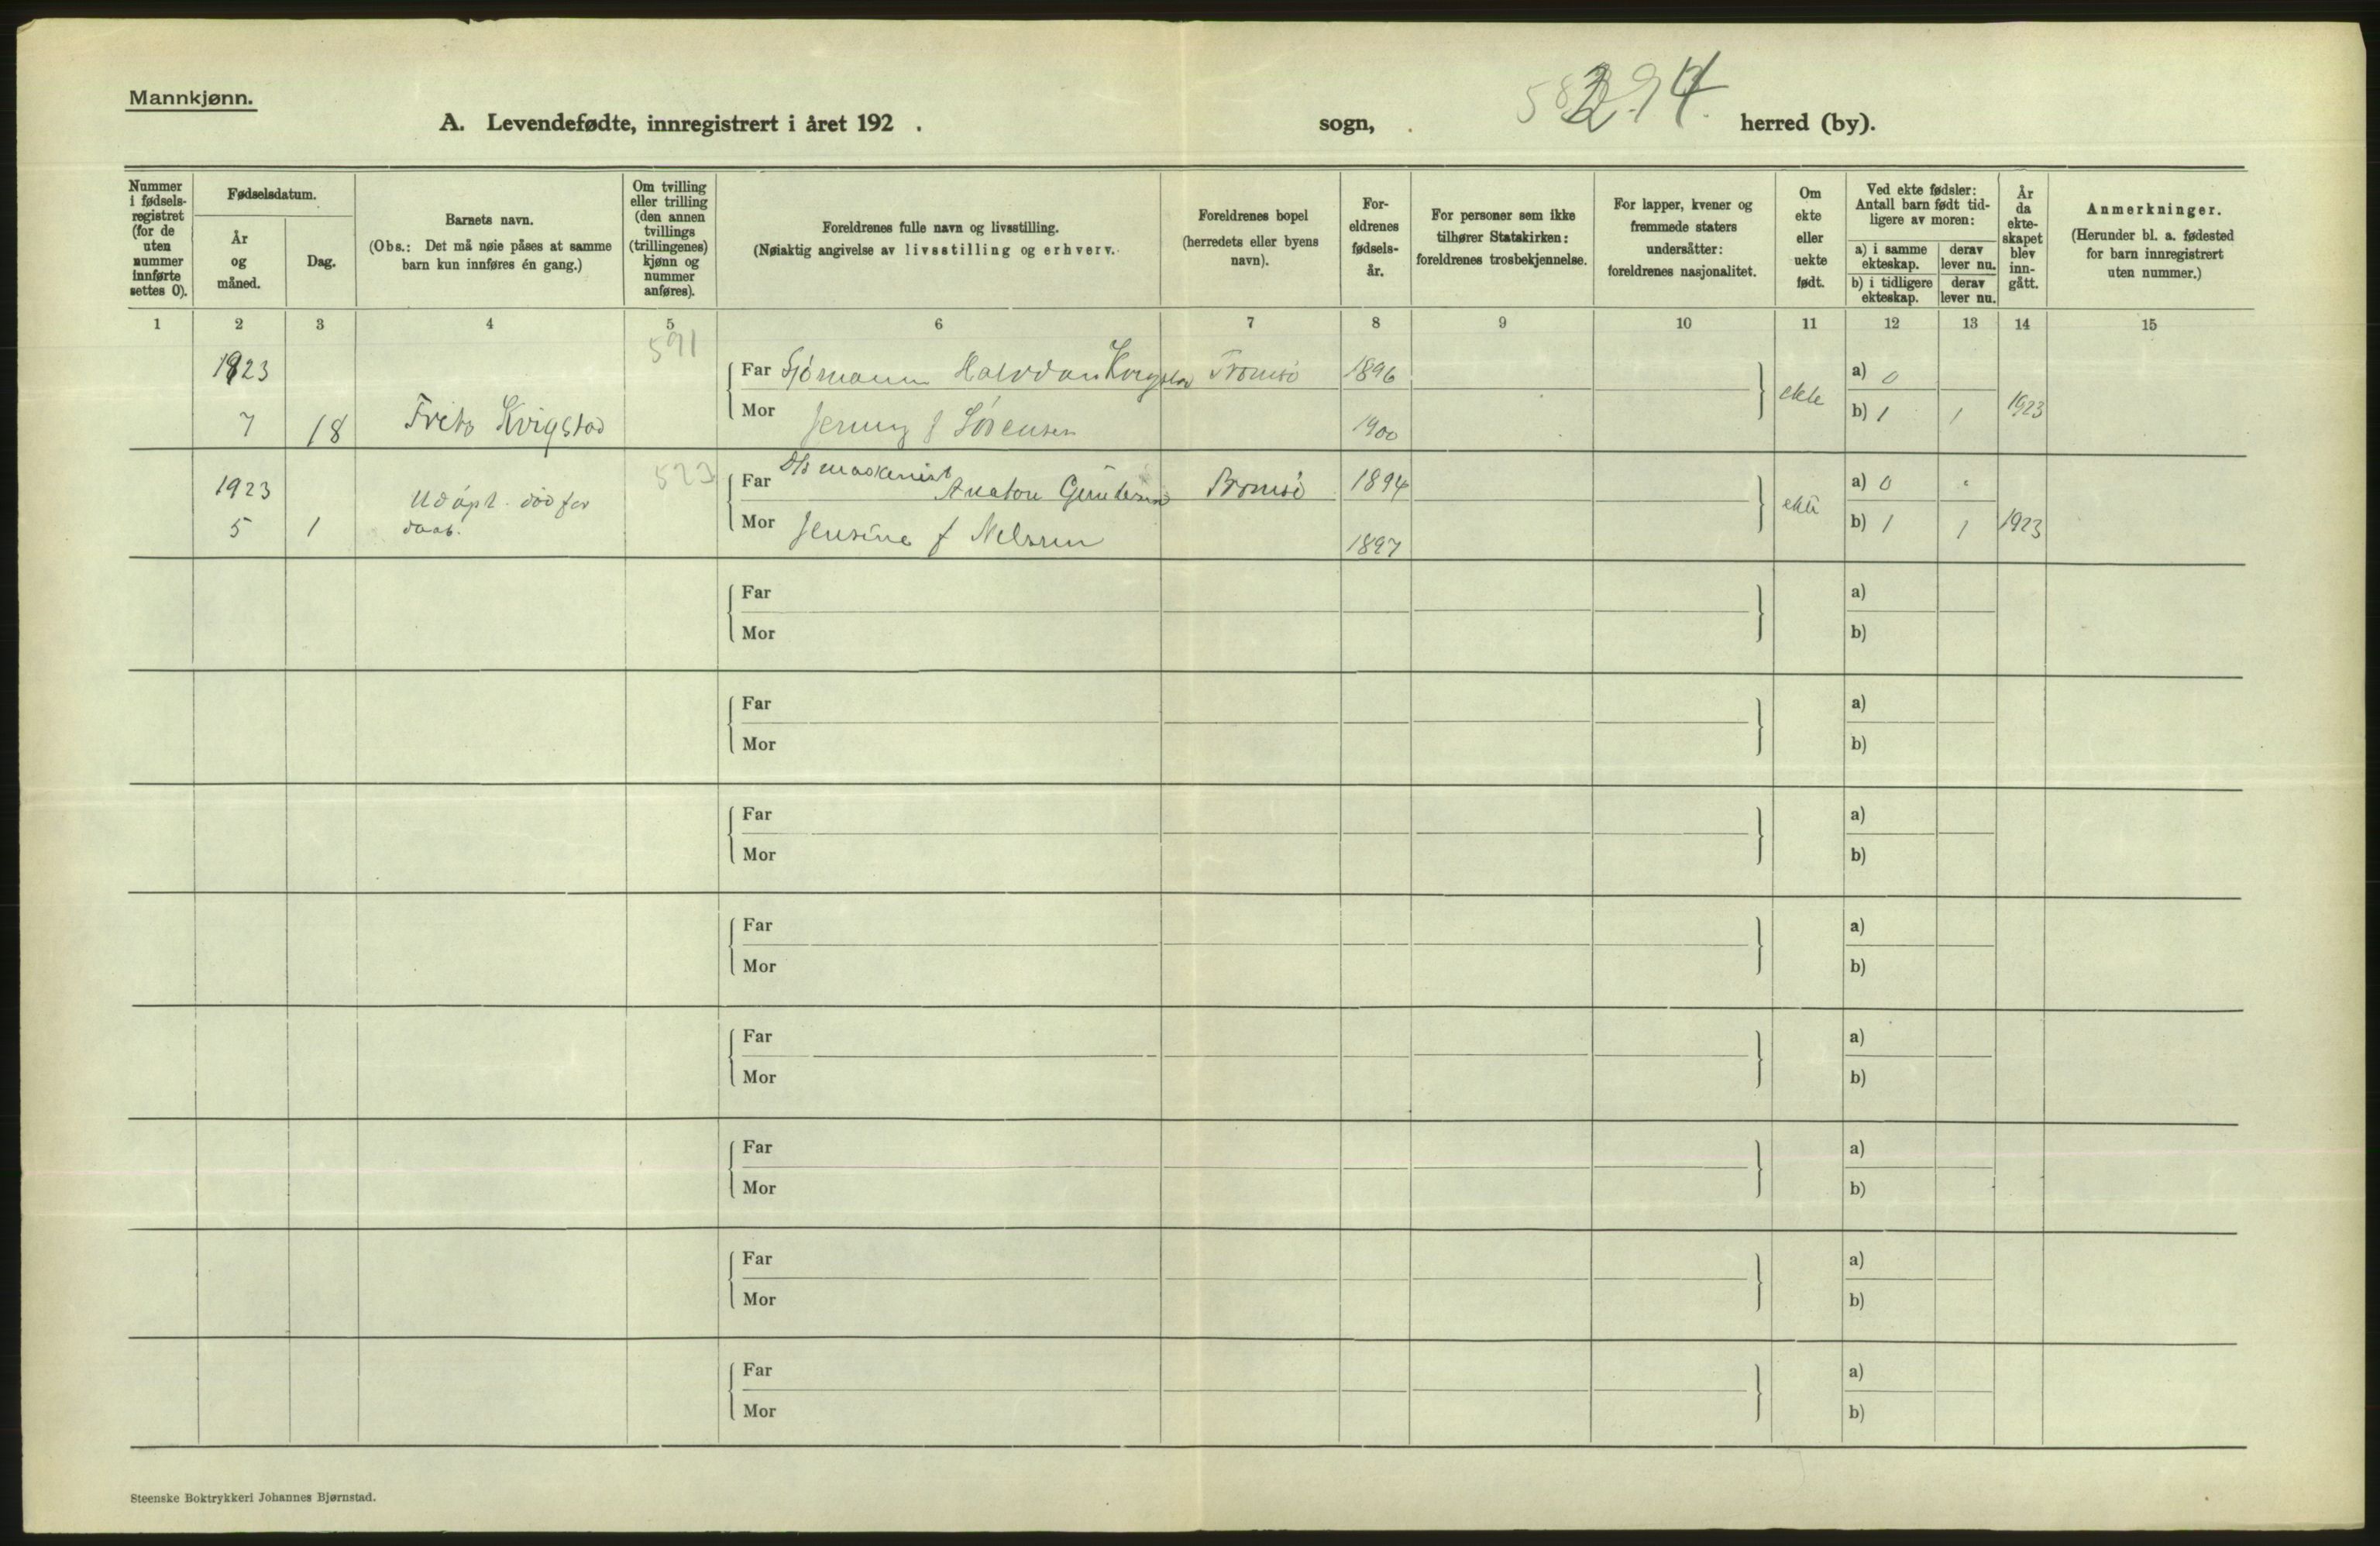 Mannkjønn.
A. Levendefødte, innregistrert i året 192 . sogn, herred (by).
294
Nummer i fødsels-registret (for de uten nummer innførte settes 0).
Fødselsdatum.
År og måned.
Dag.
Barnets navn.
(Obs.: Det må nøie påses at samme barn kun innføres én gang.)
Om tvilling eller trilling (den annen tvillings (trillingenes) kjønn og nummer anføres).
Foreldrenes fulle navn og livsstilling.
(Nøiaktig angivelse av livsstilling og erhverv.
Foreldrenes bopel (herredets eller byens navn).
For-eldrenes fødsels-år.
For personer som ikke tilhører Statskirken: foreldrenes trosbekjennelse.
For lapper, kvener og fremmede staters undersåtter: foreldrenes nasjonalitet.
Om ekte eller uekte født.
Ved ekte fødsler: Antall barn født tid-ligere av moren:
a) i samme ekteskap.
derav lever nu.
b) i tidligere ekteskap.
derav lever nu.
År da ekte-skapet blev inn-gått.
Anmerkninger.
(Herunder bl. a. fødested for barn innregistrert uten nummer.)
1 2 3 4 5 6 7 8 9 10 11 12 13 14 15
591
1923 Far Sjömann Halvdan Kvigstad Tromsö 1896 ekte a) 0
7 18 Frits Kvigstad Mor Jenny f Sörensen 1900 b) 1 1 1923
523
1923 Udöpt. död før Far maskinist Tromsö 1894 ekte a) 0
5 1 daab. Mor Jensine f Nelssen 1897 b) 1 1 1923
Far a)
Mor b)
Far a)
Mor b)
Far a)
Mor b)
Far a)
Mor b)
Far a)
Mor b)
Far a)
Mor b)
Far a)
Mor b)
Far a)
Mor b)
Steenske Boktrykkeri Johannes Bjørnstad.